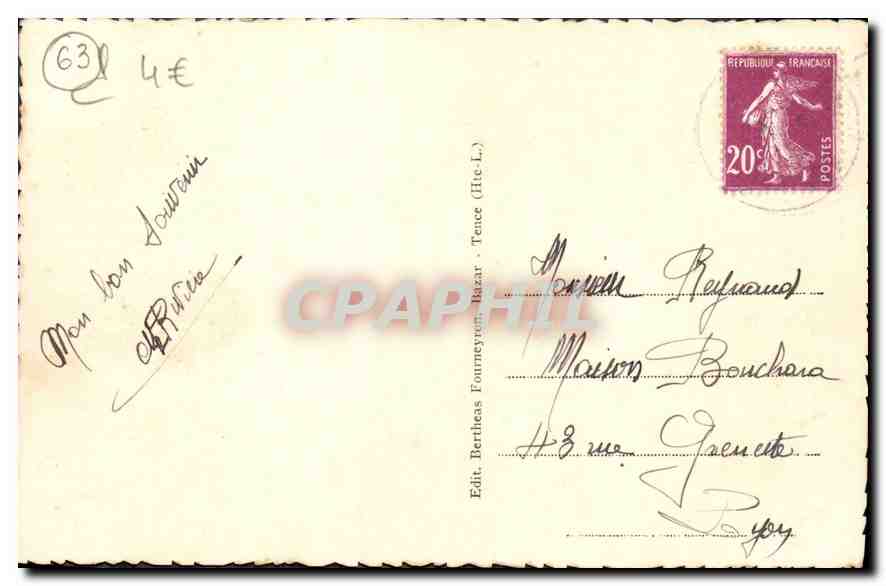 63
4€
Mon bon Souvenir
REPUBLIQUE FRANÇAISE
20c
POSTES
CPAPHIL
Edit. Bertheas Fourneyron, Bazar - Tence (Hte-L.)
Monsieur Reynaud
Maison Bouchara
43 rue Grenette
Lyon